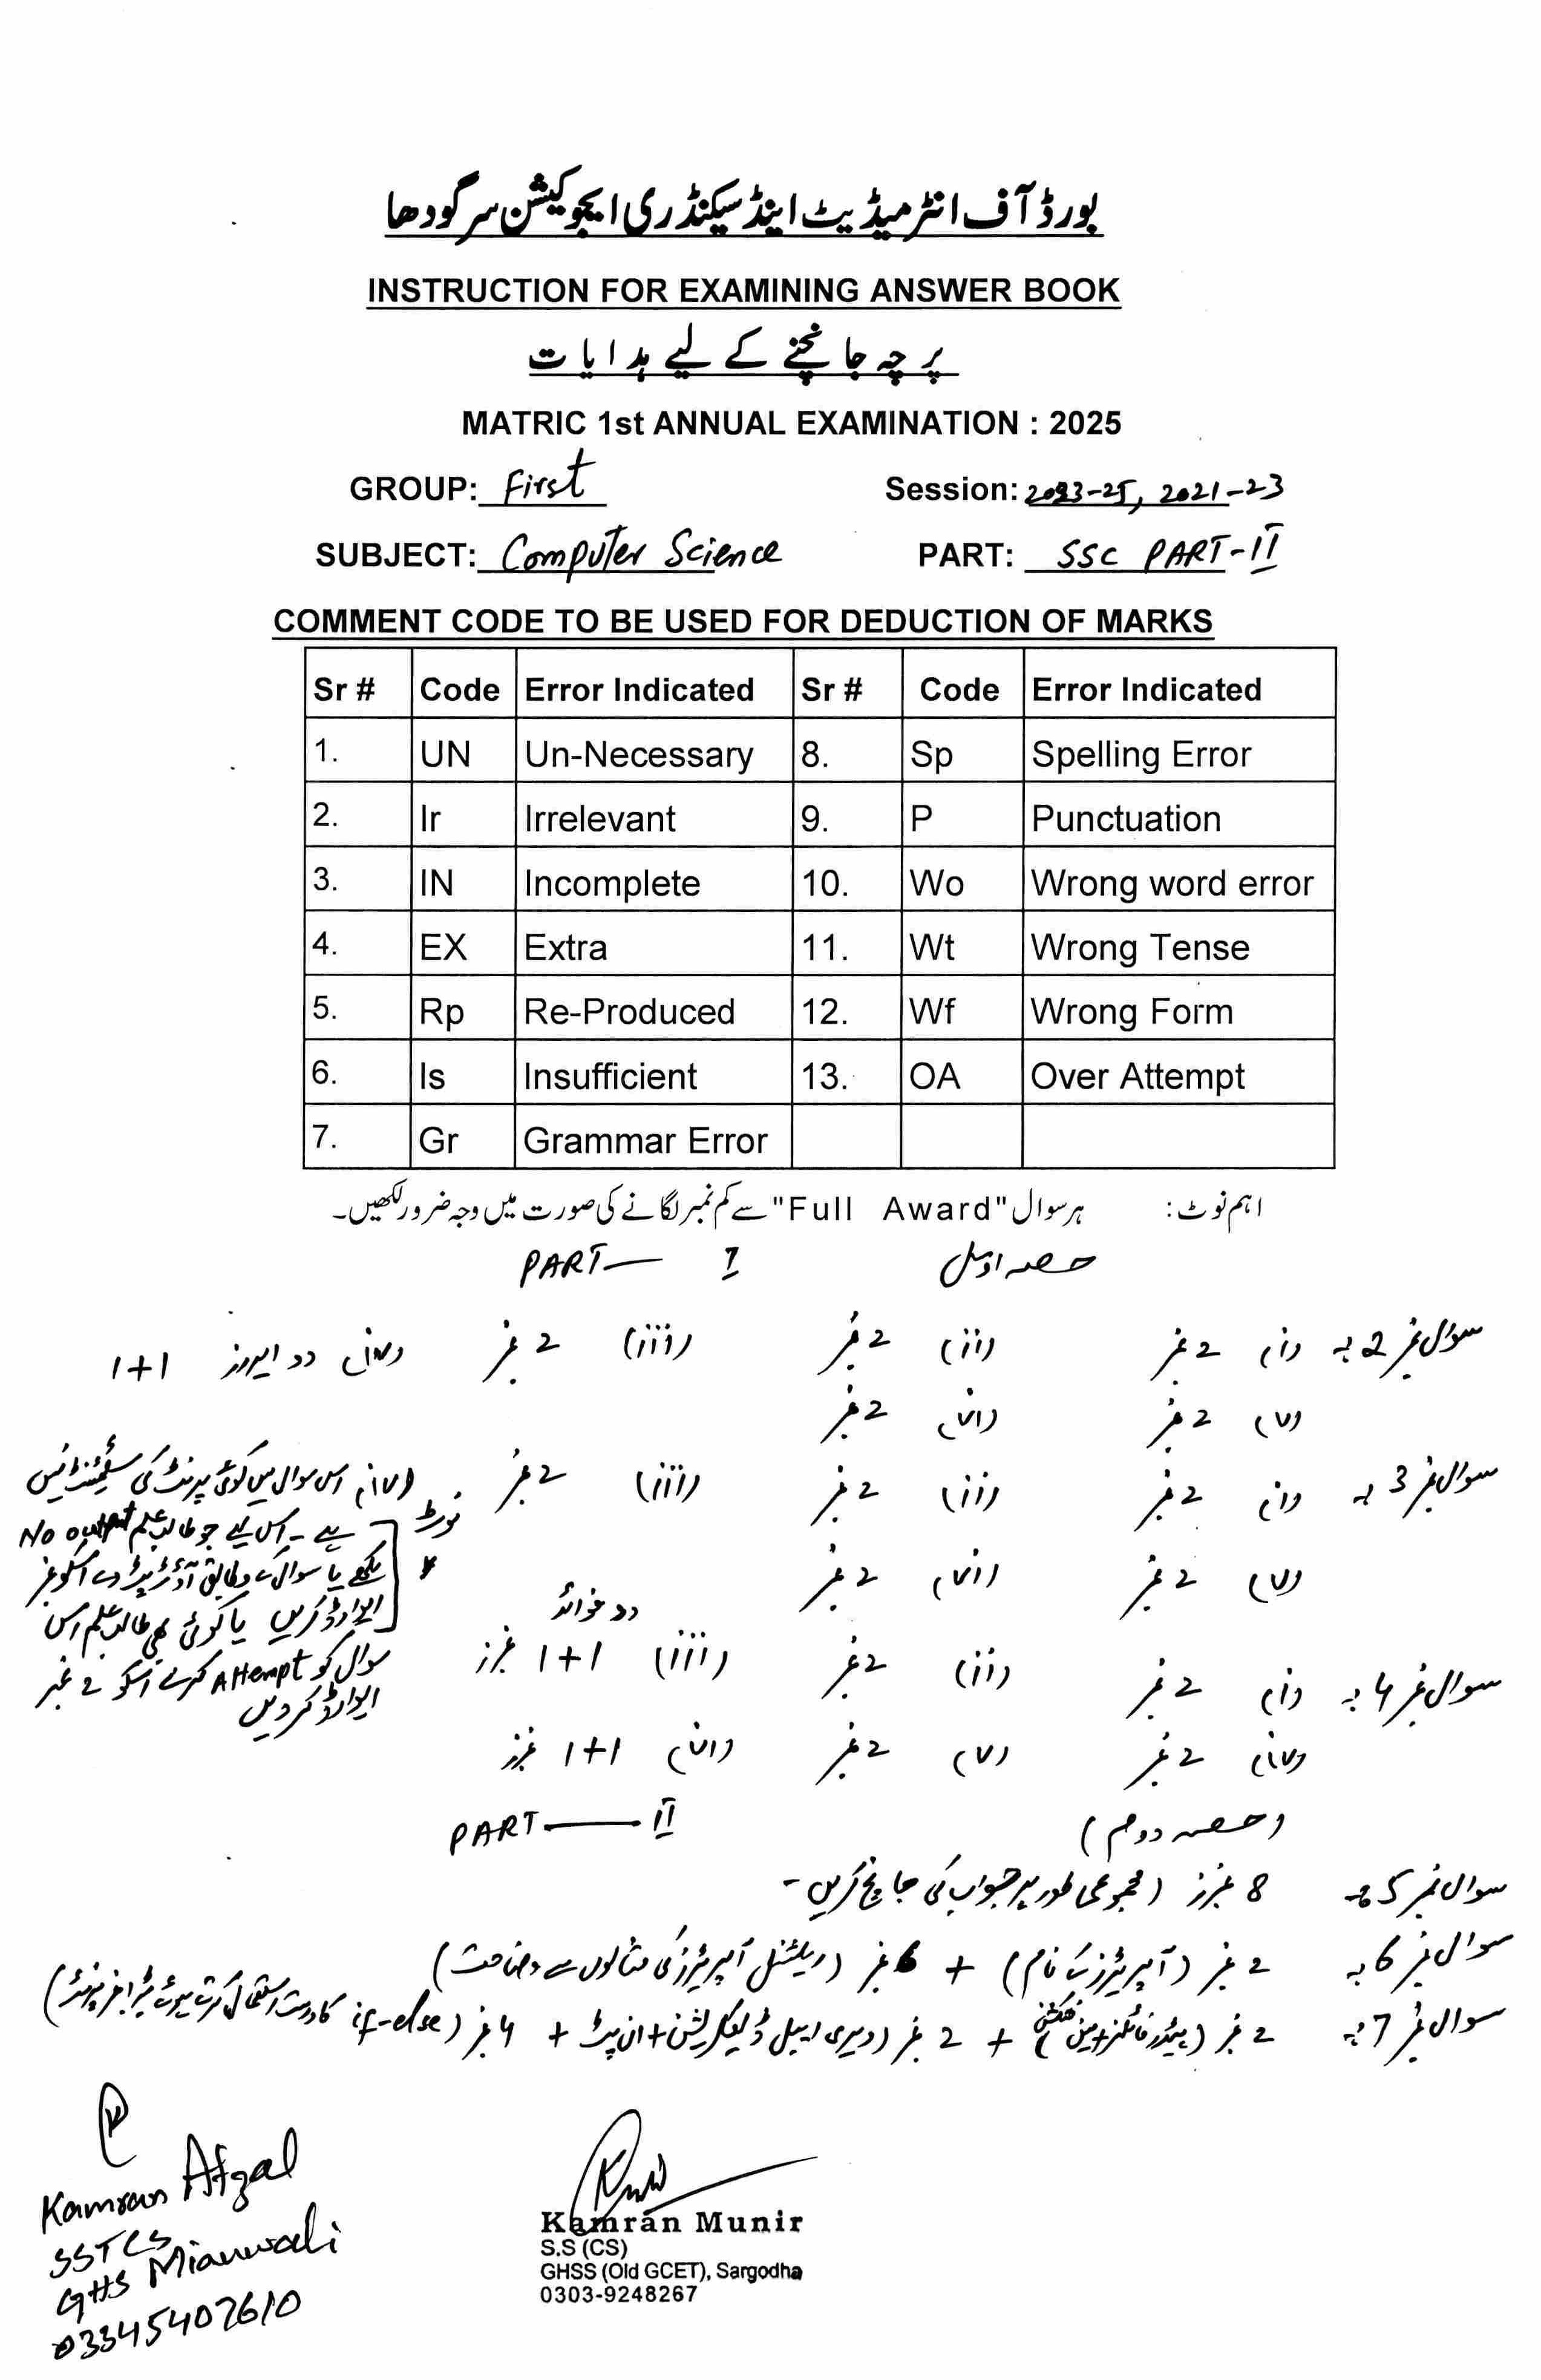 بورڈ آف انٹرمیڈیٹ اینڈ سیکنڈری ایجوکیشن سرگودھا
INSTRUCTION FOR EXAMINING ANSWER BOOK
پرچہ جانچنے کے لیے ہدایات
MATRIC 1st ANNUAL EXAMINATION : 2025
GROUP: First Session: 2023-25, 2021-23
SUBJECT: Computer Science PART: SSC PART-II
COMMENT CODE TO BE USED FOR DEDUCTION OF MARKS
Sr # Code Error Indicated Sr # Code Error Indicated
1. UN Un-Necessary 8. Sp Spelling Error
2. Ir Irrelevant 9. P Punctuation
3. IN Incomplete 10. Wo Wrong word error
4. EX Extra 11. Wt Wrong Tense
5. Rp Re-Produced 12. Wf Wrong Form
6. Is Insufficient 13. OA Over Attempt
7. Gr Grammar Error
اہم نوٹ: ہر سوال "Full Award" سے کم نمبر لگانے کی صورت میں وجہ ضرور لکھیں۔
حصہ اول PART— I
سوال نمبر 2 :۔ (i) 2 نمبر (ii) 2 نمبر (iii) 2 نمبر (iv) دو ایررز 1+1
(v) 2 نمبر (vi) 2 نمبر
سوال نمبر 3 :۔ (i) 2 نمبر (ii) 2 نمبر (iii) 2 نمبر (iv) اس سوال میں کوئی پرنٹ کی سٹیٹمنٹ نہیں
نوٹ ہے۔ اس لیے جو طالب علم No output
(v) 2 نمبر (vi) 2 نمبر * لکھے یا سوال کے مطابق آؤٹ پٹ دے اسکو نمبر
ایوارڈ کریں یا کوئی بھی طالب علم اس
سوال کو Attempt کرے اسکو 2 نمبر
ایوارڈ کر دیں
سوال نمبر 4 :۔ (i) 2 نمبر (ii) 2 نمبر (iii) دو فوائد 1+1 نمبرز
(iv) 2 نمبر (v) 2 نمبر (vi) 1+1 نمبرز
(حصہ دوم) PART — II
سوال نمبر 5 :۔ 8 نمبرز (مجموعی طور پر جواب کی جانچ کریں۔
سوال نمبر 6 :۔ 2 نمبر (آپریٹرز کے نام) + 6 نمبر (ریلیشنل آپریٹرز کی مثالوں سے وضاحت)
سوال نمبر 7 :۔ 2 نمبر (ہیڈر فائلز + مین فنکشن) + 2 نمبر (ویری ایبل ڈیکلریشن + ان پٹ + 4 نمبر (if-else کا درست استعمال کرتے ہوئے
Kamran Afzal
SST CS
GHS Mianwali
03345407610
Kamran Munir
S.S (CS)
GHSS (Old GCET), Sargodha
0303-9248267